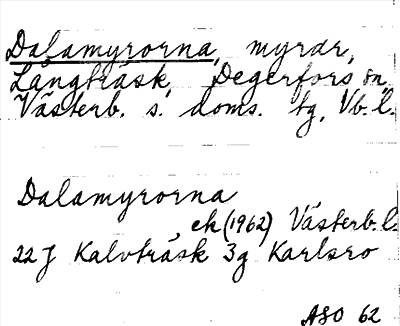 Dalamyrorna, myrar,
Långträsk, Degerfors sn,
Västerb. s. doms. tg, Vb. l.
Dalamyrorna
, ek (1962) Västerb. l.
22 J Kalvträsk 3g Karlsro
ASO 62